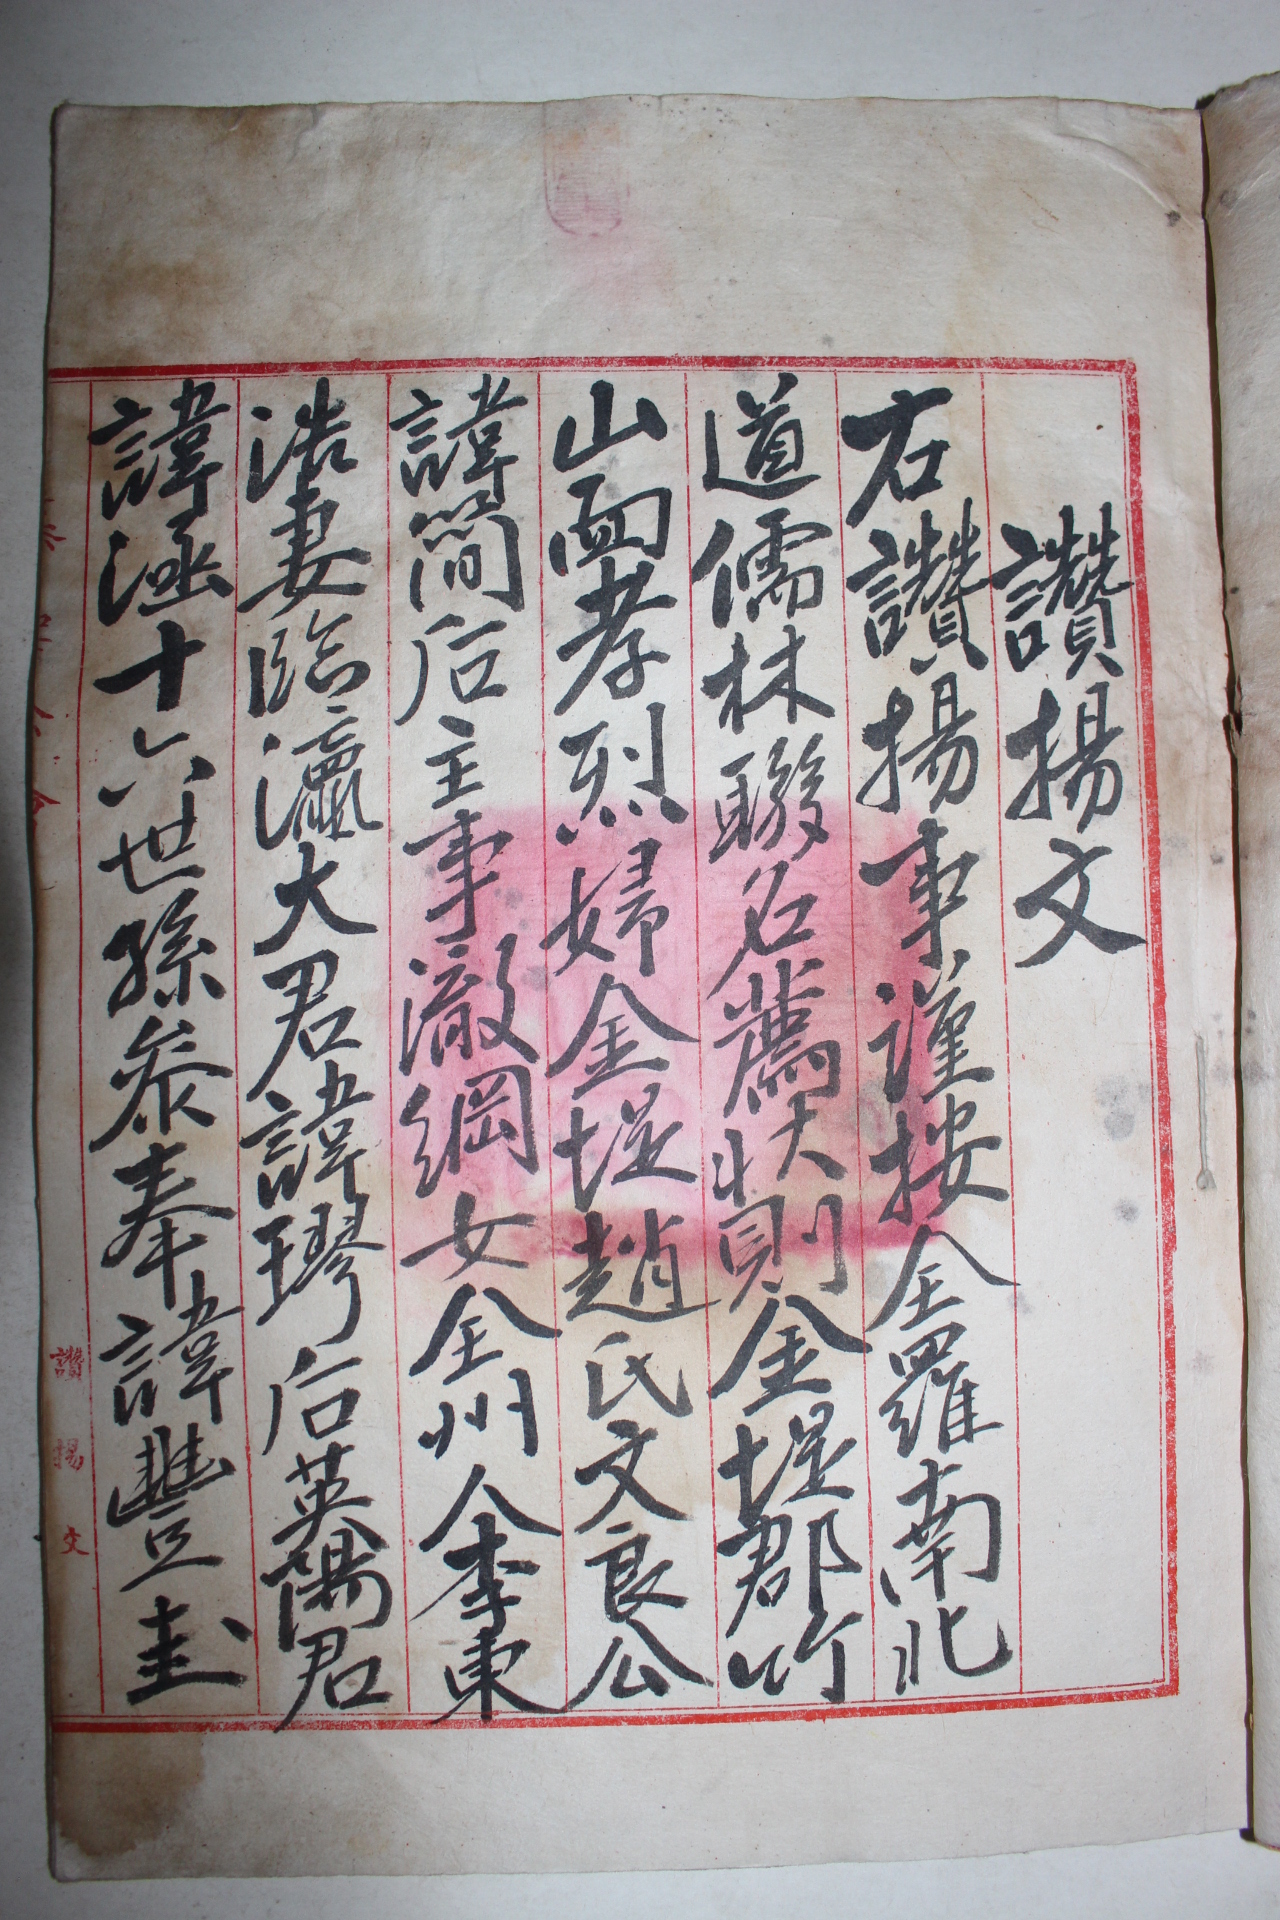 讚揚文
右讚揚事謹按全羅南北
道儒林聯名薦狀則金堤郡竹
山面孝烈婦金堤趙氏文良公
諱簡后主事澈綱女全州人李東
浩妻臨瀛大君諱璆后英陽君
諱涵十六世孫參奉諱豐圭
讚揚文